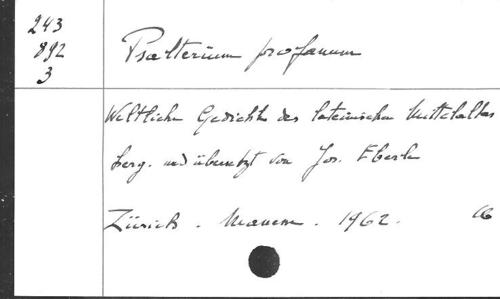 243
892
3
Psalterium profanum
Weltliche Gedichte des lateinischen Mittelalters
herg. und übersetzt von Jos. Eberle
Zürich. Manesse. 1962.